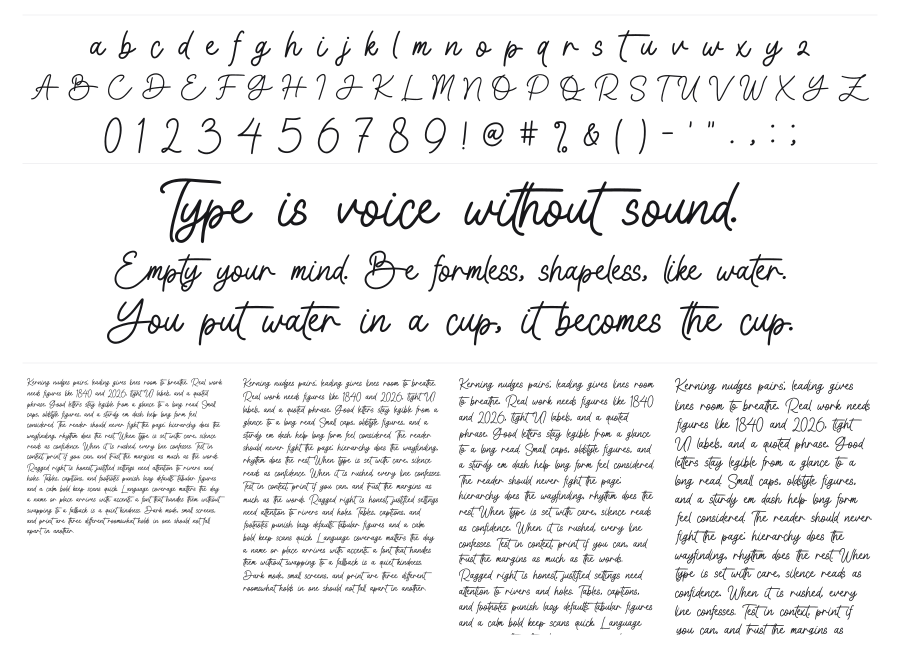 a b c d e f g h i j k l m n o p q r s t u v w x y z
A B C D E F G H I J K L M N O P Q R S T U V W X Y Z
0 1 2 3 4 5 6 7 8 9 ! @ # % & ( ) - ' " . , : ;
Type is voice without sound.
Empty your mind. Be formless, shapeless, like water.
You put water in a cup, it becomes the cup.
Kerning nudges pairs; leading gives lines room to breathe. Real work
needs figures like 1840 and 2026, tight UI labels, and a quoted
phrase. Good letters stay legible from a glance to a long read. Small
caps, oldstyle figures, and a sturdy em dash help long form feel
considered. The reader should never fight the page; hierarchy does the
wayfinding, rhythm does the rest. When type is set with care, silence
reads as confidence. When it is rushed, every line confesses. Test in
context, print if you can, and trust the margins as much as the words.
Ragged right is honest; justified settings need attention to rivers and
holes. Tables, captions, and footnotes punish lazy defaults; tabular figures
and a calm bold keep scans quick. Language coverage matters: the day
a name or place arrives with accents, a font that handles them without
swapping to a fallback is a quiet kindness. Dark mode, small screens,
and print are three different rooms; what holds in one should not fall
apart in another.
Kerning nudges pairs; leading gives lines room to breathe.
Real work needs figures like 1840 and 2026, tight UI
labels, and a quoted phrase. Good letters stay legible from a
glance to a long read. Small caps, oldstyle figures, and a
sturdy em dash help long form feel considered. The reader
should never fight the page; hierarchy does the wayfinding,
rhythm does the rest. When type is set with care, silence
reads as confidence. When it is rushed, every line confesses.
Test in context, print if you can, and trust the margins as
much as the words. Ragged right is honest; justified settings
need attention to rivers and holes. Tables, captions, and
footnotes punish lazy defaults; tabular figures and a calm
bold keep scans quick. Language coverage matters: the day
a name or place arrives with accents, a font that handles
them without swapping to a fallback is a quiet kindness.
Dark mode, small screens, and print are three different
rooms; what holds in one should not fall apart in another.
Kerning nudges pairs; leading gives lines room
to breathe. Real work needs figures like 1840
and 2026, tight UI labels, and a quoted
phrase. Good letters stay legible from a glance
to a long read. Small caps, oldstyle figures, and
a sturdy em dash help long form feel considered.
The reader should never fight the page;
hierarchy does the wayfinding, rhythm does the
rest. When type is set with care, silence reads
as confidence. When it is rushed, every line
confesses. Test in context, print if you can, and
trust the margins as much as the words.
Ragged right is honest; justified settings need
attention to rivers and holes. Tables, captions,
and footnotes punish lazy defaults; tabular figures
and a calm bold keep scans quick. Language
Kerning nudges pairs; leading gives
lines room to breathe. Real work needs
figures like 1840 and 2026, tight
UI labels, and a quoted phrase. Good
letters stay legible from a glance to a
long read. Small caps, oldstyle figures,
and a sturdy em dash help long form
feel considered. The reader should never
fight the page; hierarchy does the
wayfinding, rhythm does the rest. When
type is set with care, silence reads as
confidence. When it is rushed, every
line confesses. Test in context, print if
you can, and trust the margins as